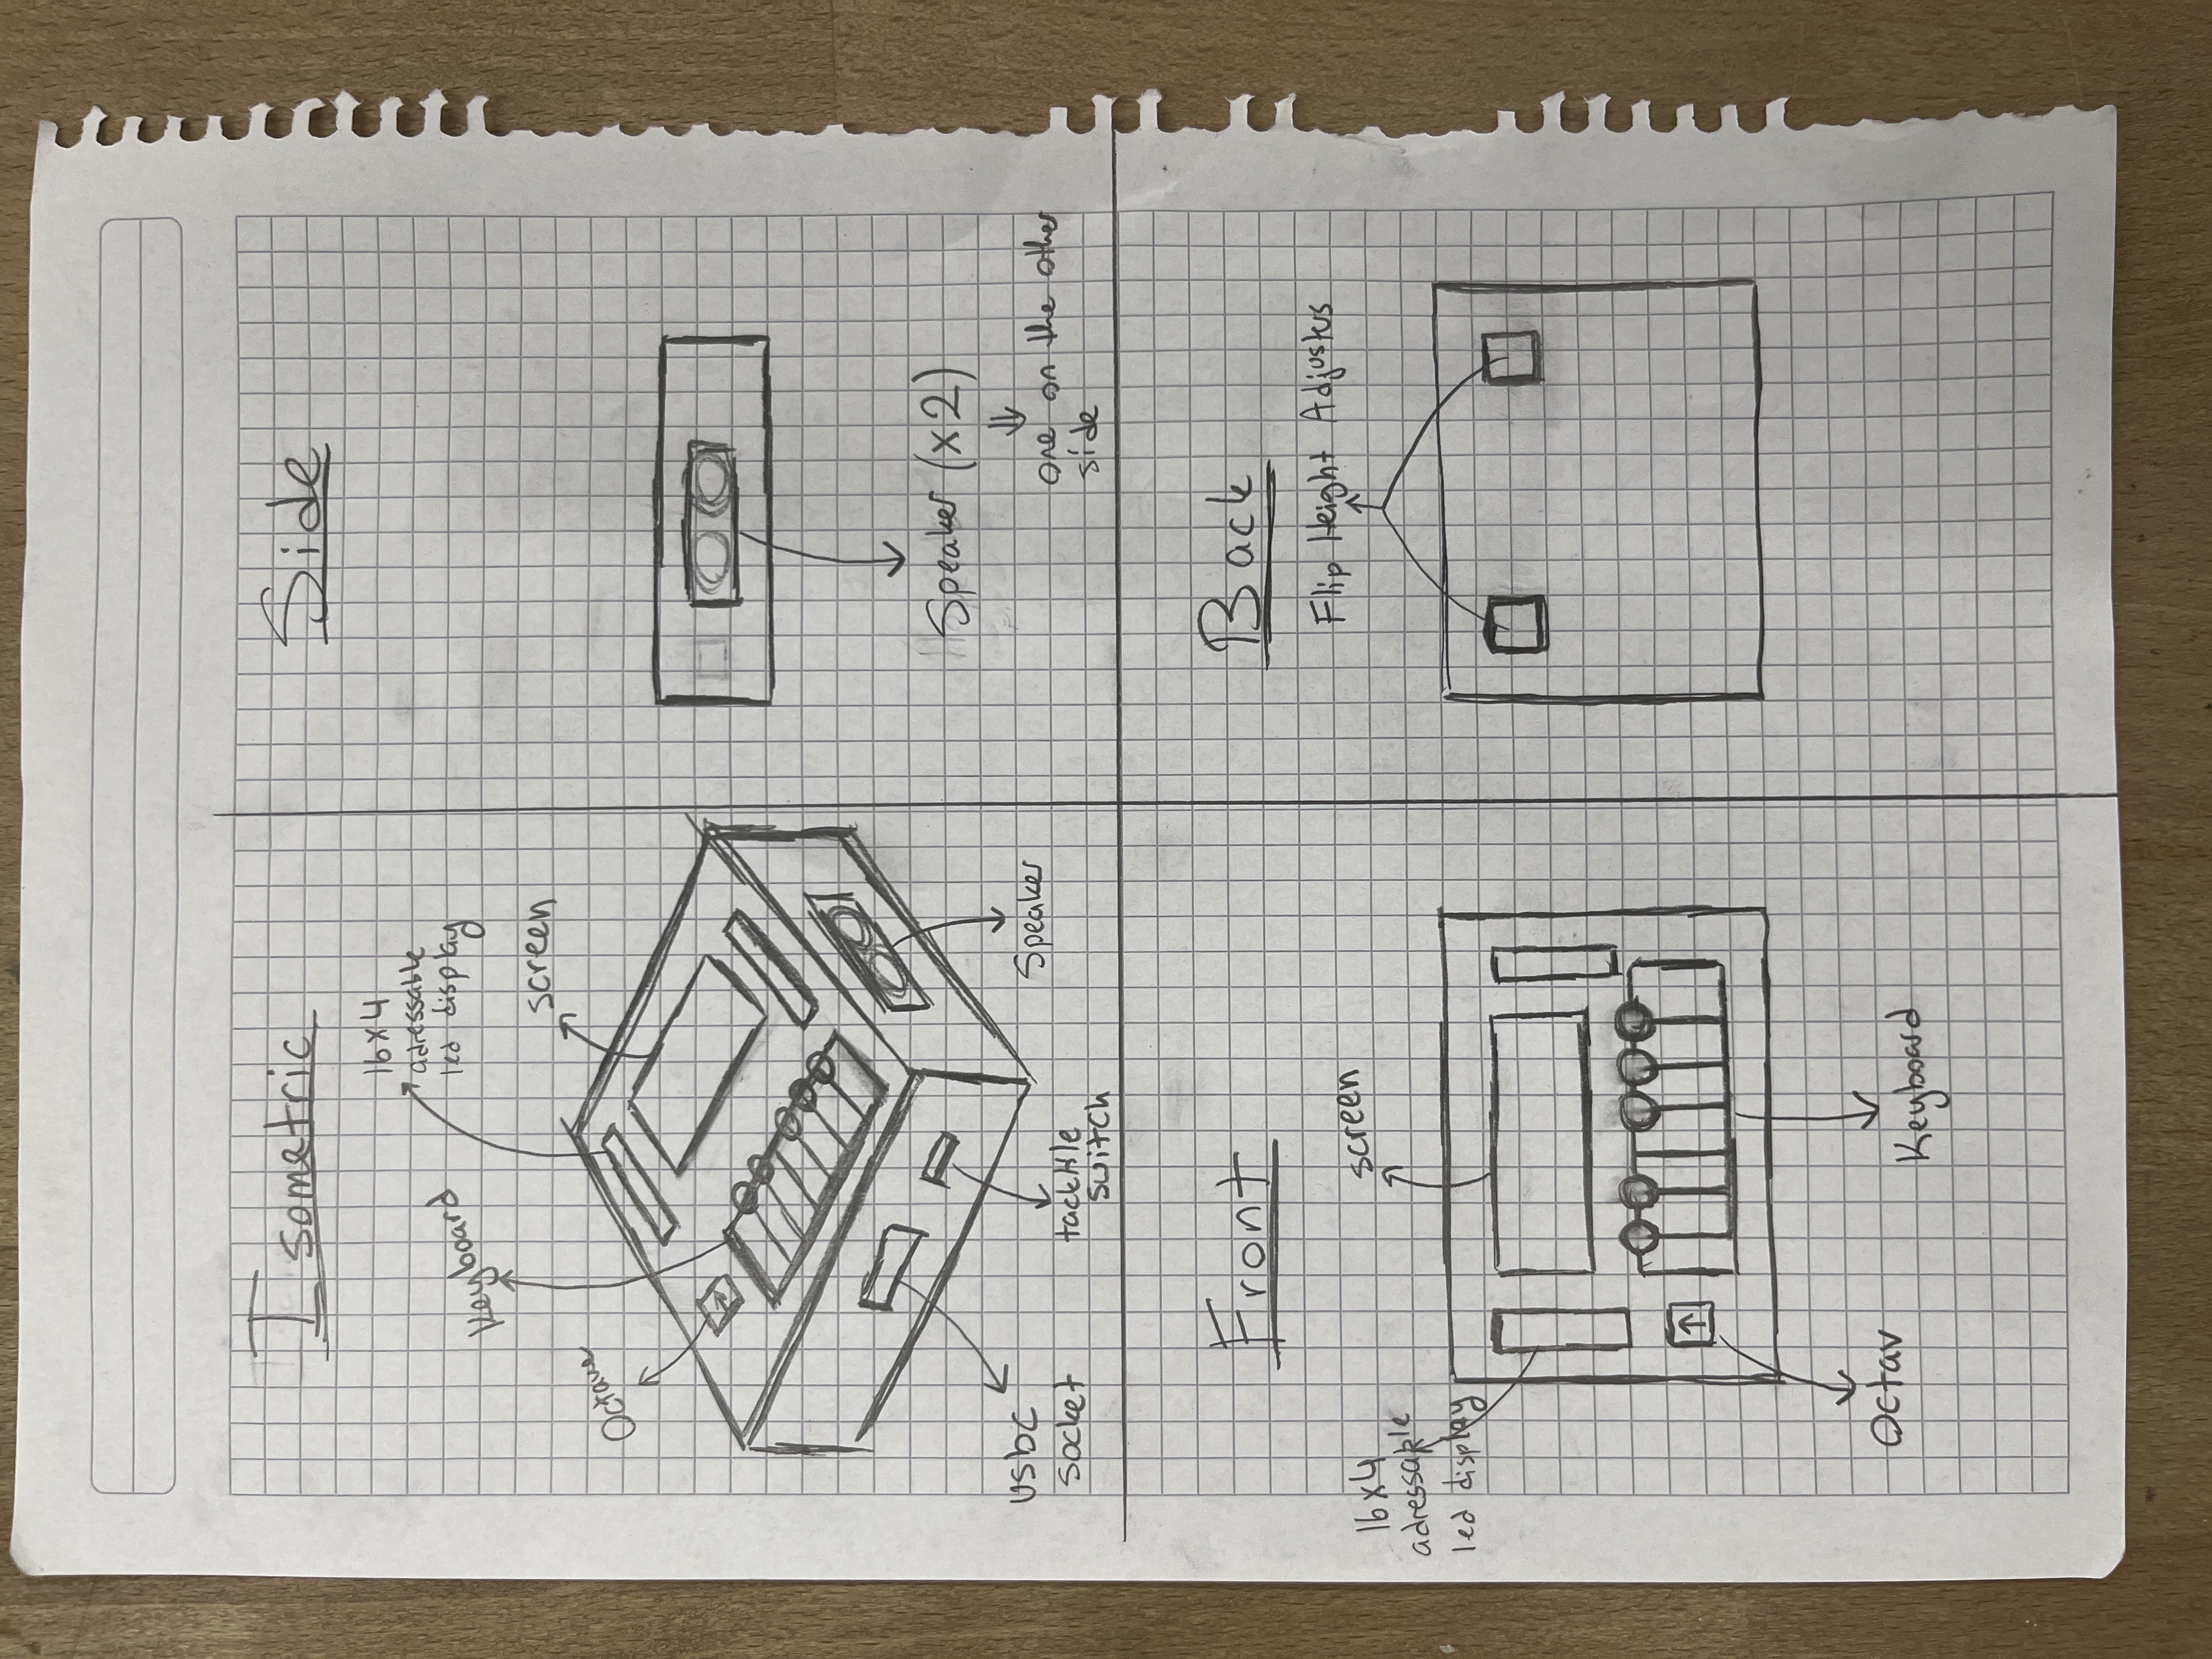 Isometric
16x4
adressable
led display
Keyboard
screen
Octave
usbc
socket
tacktile
switch
Speaker
Side
Speaker (x2)
one on the other
side
Front
16x4
adressable
led display
screen
Octav
Keyboard
Back
Flip Height Adjusters